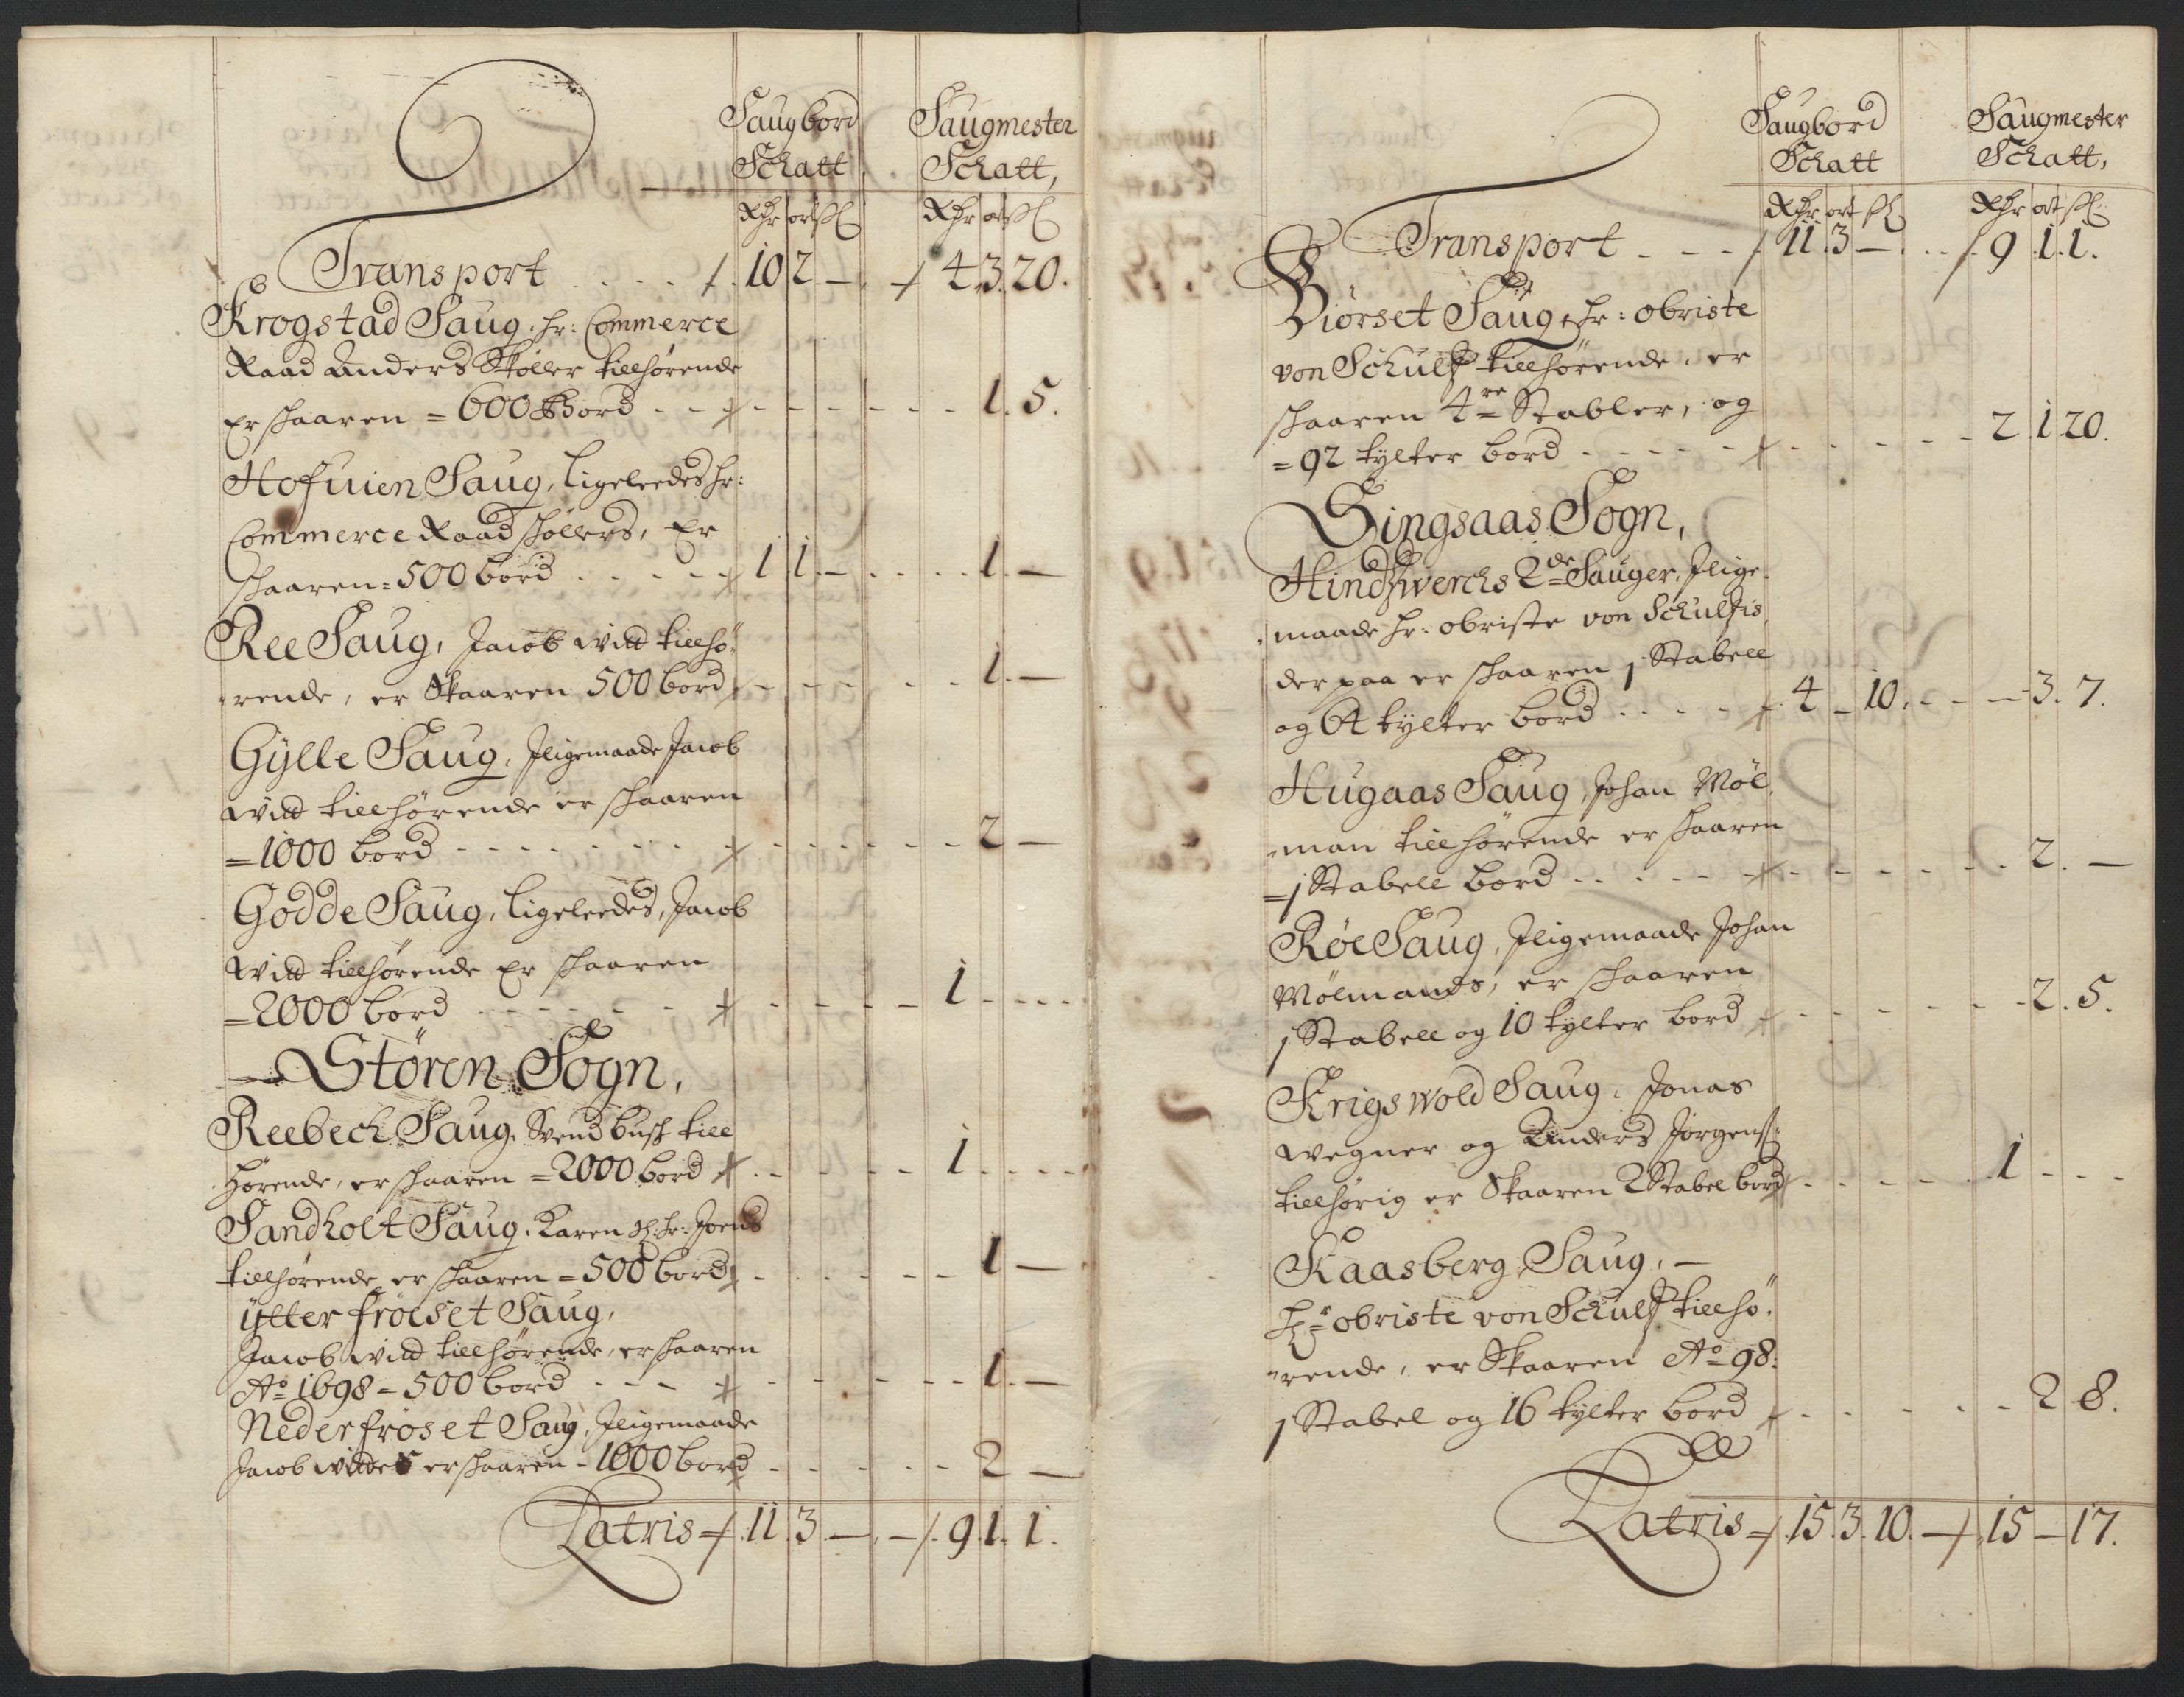 Saugbord Saugmester
Schatt, Schatt,
Rdr ort sl Rdr ort sl
Transport . . . . 10 2 — 4 3 20.
Krogstad Saug, hr: Commerce
Raad Anders Skøller tillhørende
Er skaaren = 600 Bord - - - 1. 5.
Hofuien Saug, ligeleedes hr:
Commerce Raad skøllers, Er
skaaren = 500 bord . . . . . 1 1 — . . . . 1. —
Ree Saug, Jacob Witt tillhø-
rende, er Skaaren 500 bord - - - 1. —
Gylle Saug, Jligemaade Jacob
Witt tillhørende er skaaren
= 1000 bord - - - - - - - 2 —
Godde Saug, ligeleedes, Jacob
Witt tillhørende Er skaaren
= 2000 bord - - - - - - 1 - - - -
Støren Sogn,
Reebech Saug, Svend Busk till
hørende, er skaaren = 2000 bord - - - 1 - - - -
Sandholt Saug, Karen Hr: Joens
tillhørende er skaaren = 500 bord - - - 1 —
Ytter frøeset Saug,
Jacob Witt tillhørende, er skaaren
Ao 1698 = 500 bord - - - 1. —
Neder frøset Saug, Jligemaade
Jacob Wittes er skaaren - 1000 bord - - - 2 —
Latris 11 3 — 9 1. 1.
Saugbord Saugmester
Schatt Schatt,
Rdr ort sl Rdr ort sl
Transport - - - 11. 3 — . . 9 1. 1.
Biørset Saug, hr: obriste
von Schultz tillhørende, er
skaaren 4re Stabler, og
= 92 tylter bord - - - - - 2 1 20.
Singsaas Sogn,
Hindswerchs 2de Sauger, Jlige-
maade hr: obriste von Schultzis,
der paa er skaaren 1 Stabell
og 64 tylter bord . . . . 4 — 10. - - — 3. 7.
Hugaas Saug, Johan Møl-
man tillhørende er skaaren
= 1 Stabell bord - - - - - 2. —
Røe Saug, Jligemaade Johan
Mølmands, er skaaren
1 Stabell og 10 tylter bord - - - 2. 5.
Krigswold Saug, Jonas
Wegner og Anders Jørgens:
tillhørig er Skaaren 2 Stabel bord - - - 1 - - -
Kaasberg Saug, —
Hr obriste von Schultz tillhø-
rende, er Skaaren Ao 98:
1 Stabel og 16 tylter bord - - - 2 8.
Latris 15. 3. 10. — 15 — 17.